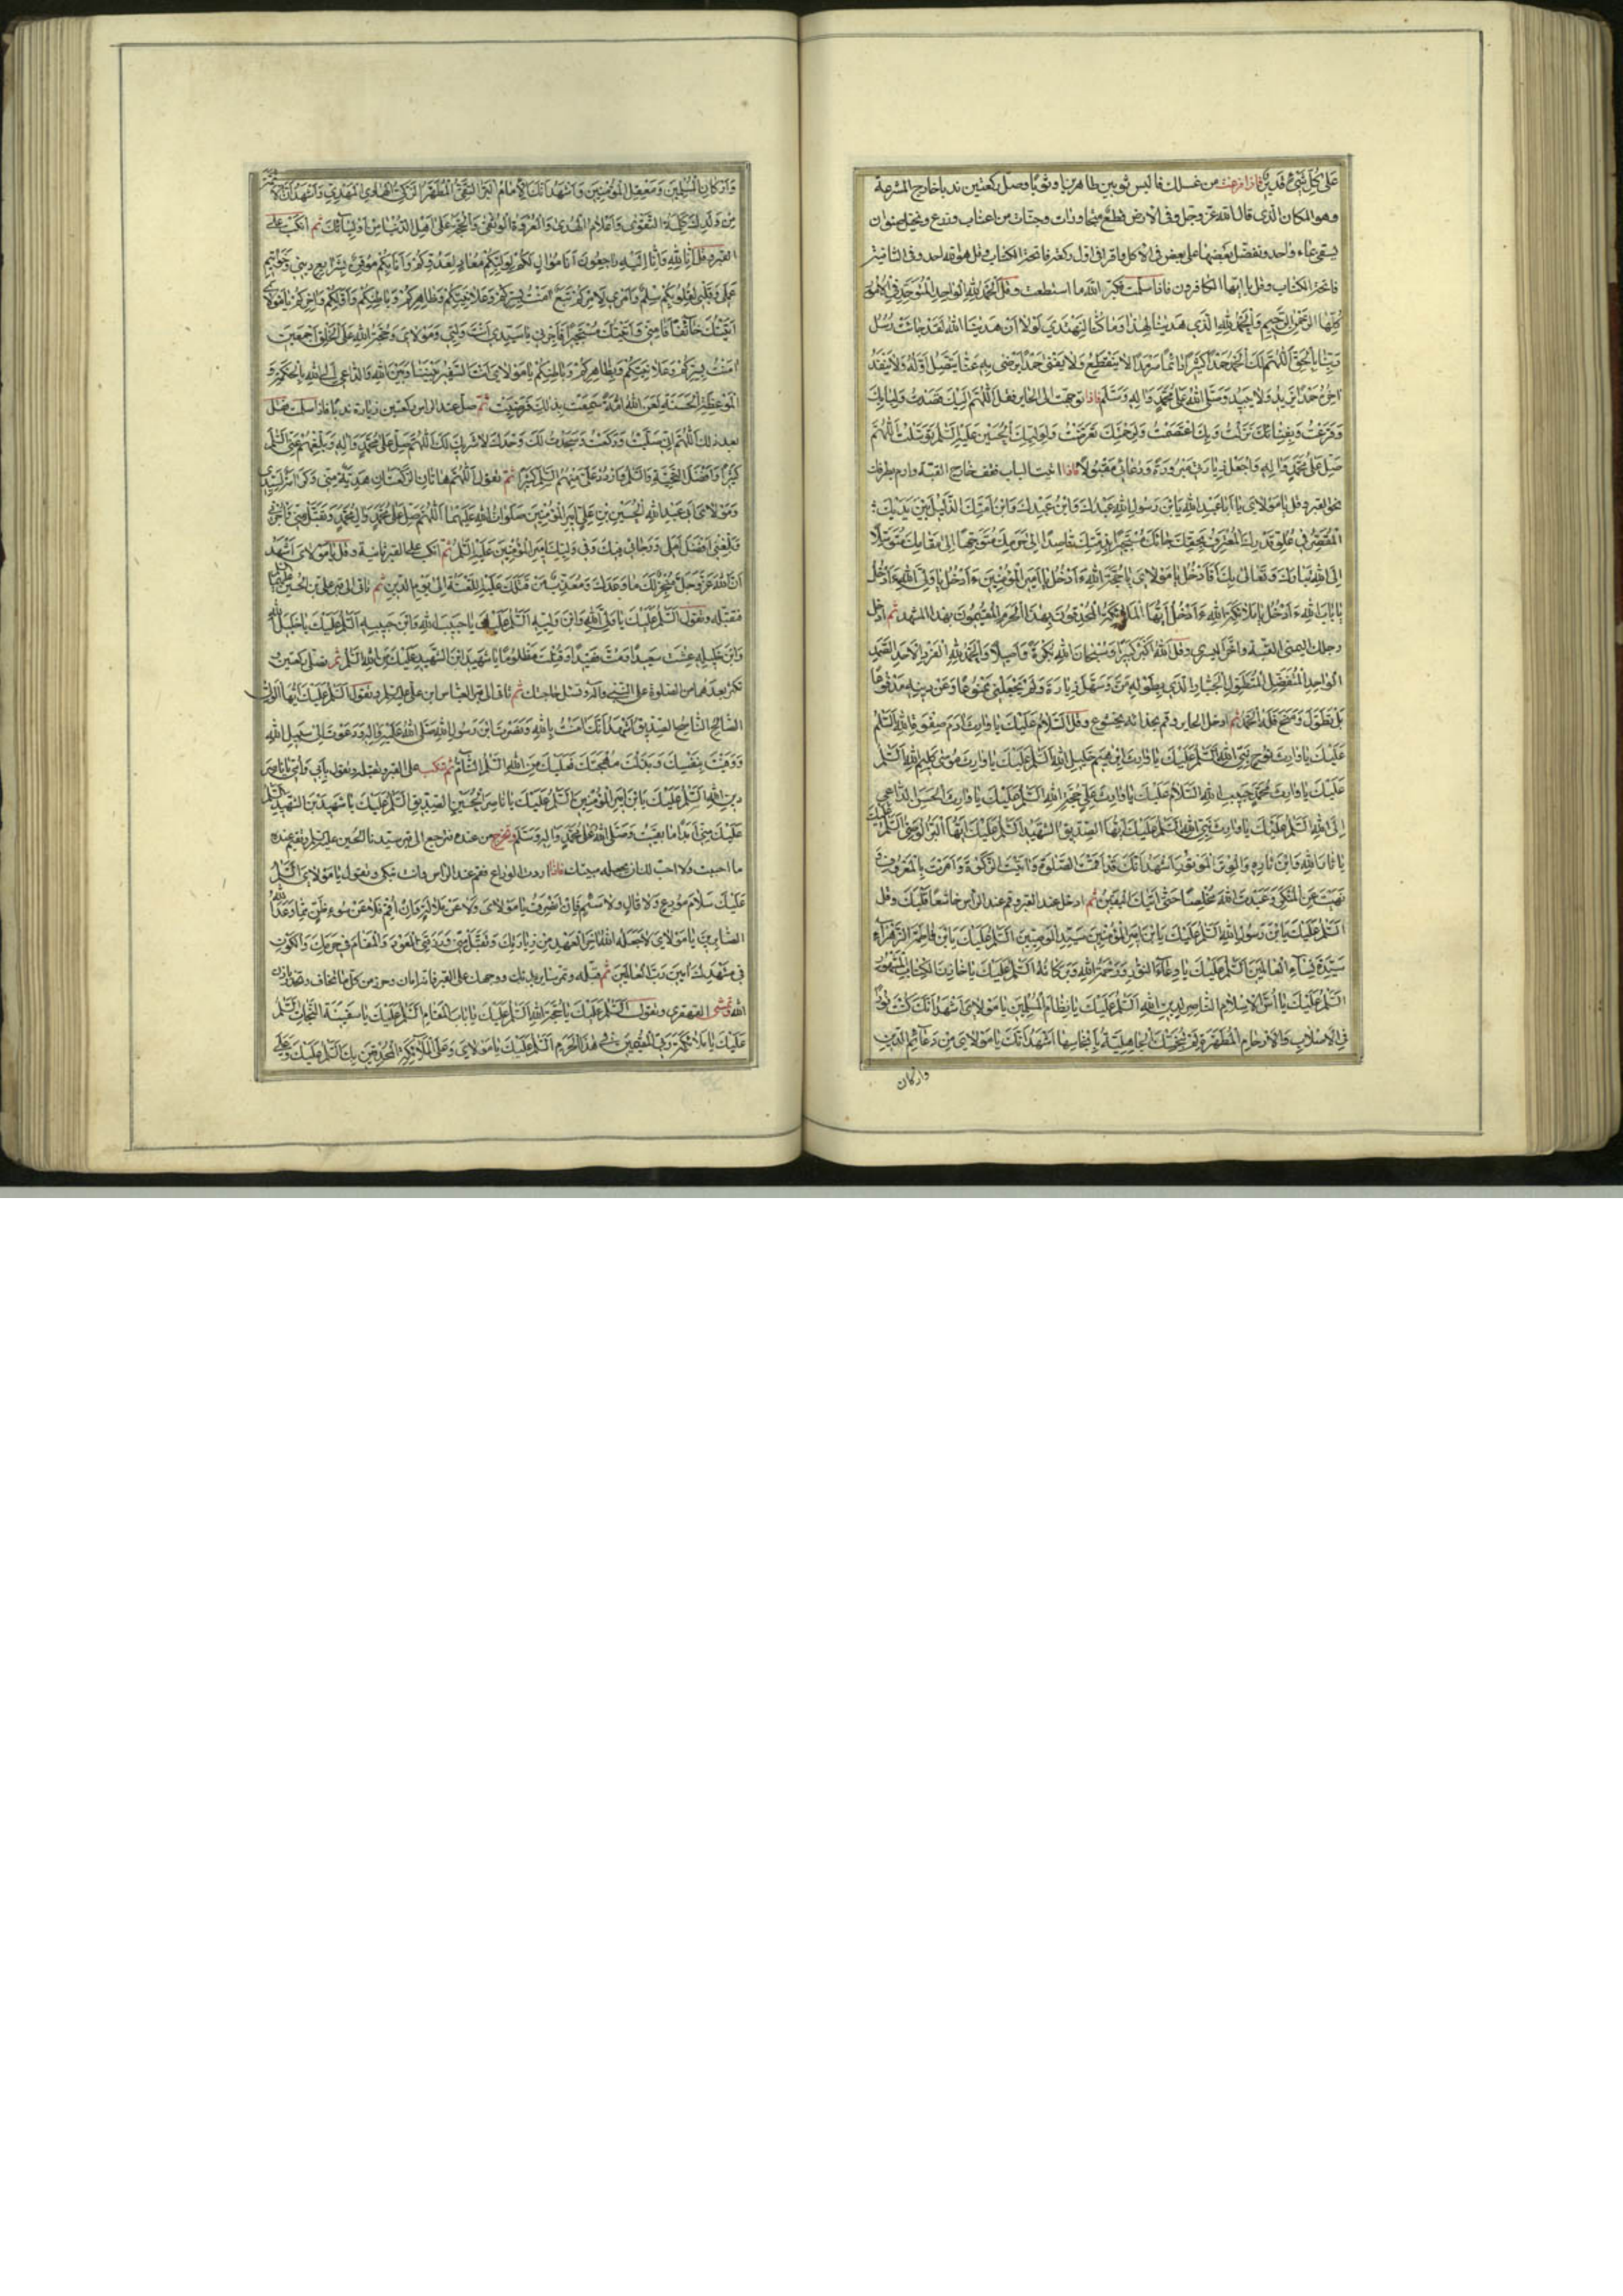 على كل شيء قدير فاذا فرغت من غسلك فالبس ثوبين طاهرين او ثوبا وصل ركعتين ندبا خارج المشرعة
وهو المكان الذي قال الله عز وجل وفي الارض قطع متجاورات وجنات من اعناب وزرع ونخيل صنوان
يسقى بماء واحد ونفضل بعضها على بعض في الاكل واقرا في اول ركعة فاتحة الكتاب وقل هو الله احد وفي الثانية
فاتحة الكتاب وقل يا ايها الكافرون فاذا سلمت فكبر الله ما استطعت وقل الحمد لله الواحد المتوحد في الامور
كلها الرحمن الرحيم والحمد لله الذي هدينا لهذا وما كنا لنهتدي لولا ان هدينا الله لقد جاءت رسل
ربنا بالحق اللهم لك الحمد حمدا كثيرا دائما سرمدا لا ينقطع ولا يفنى حمدا ترضى به عنا يتصل اوله ولا ينفد
اخره حمدا يزيد ولا يبيد وصلى الله على محمد واله وسلم فاذا توجهت الى الحاير فقل اللهم اليك قصدت ولبابك
وقرعت وبفنائك نزلت وبك اعتصمت ولرحمتك تعرضت وبوليك الحسين عليه السلم توسلت اللهم
صل على محمد واله واجعل زيارتي مبرورة ودعائي مقبولا فاذا اتيت الباب فقف خارج القبة وارم بطرفك
نحو القبر وقل يا مولاي يا ابا عبد الله يا بن رسول الله عبدك وابن عبدك وابن امتك الذليل بين يديك
المقصر في علو قدرك المعترف بحقك جاءك مستجيرا بذمتك قاصدا الى حرمك متوجها الى مقامك متوسلا
الى الله تبارك وتعالى بك أفادخل يا مولاي يا حجة الله ءادخل يا امير المؤمنين ءادخل يا ولي الله ءادخل
يا باب الله ءادخل يا ملائكة الله ءادخل ايها الملائكة المحدقون بهذا الحرم المقيمون بهذا المشهد ثم ادخل
رجلك اليمنى القبة واخر اليسرى وقل الله اكبر كبيرا وسبحان الله بكرة واصيلا والحمد لله الفرد الاحد الصمد
الواحد المتفضل المتطول الجبار الذي بطوله من وسهل زيارة ولم يجعلني ممنوعا وعن دينه مدفوعا
بل تطول ومنح فله الحمد ثم ادخل الحاير وقم بحذائه بخشوع وقل السلام عليك يا وارث ادم صفوة الله السلم
عليك يا وارث نوح نبي الله السلم عليك يا وارث ابرهيم خليل الله السلم عليك يا وارث موسى كليم الله السلم
عليك يا وارث محمد حبيب الله السلام عليك يا وارث علي حجة الله السلم عليك يا وارث الحسن الداعي
الى الله السلم عليك يا وارث الله السلم عليك ايها الصديق الشهيد السلم عليك ايها البر الوصي السلم عليك
يا ثار الله وابن ثاره والوتر الموتور اشهد انك قد اقمت الصلوة واتيت الزكوة وامرت بالمعروف و
نهيت عن المنكر وعبدت الله مخلصا حتى اتيك اليقين ثم ادخل عند القبر وقم عند الراس خاشعا قلبك وقل
السلم عليك يا بن رسول الله السلم عليك يا بن امير المؤمنين سيد الوصيين السلم عليك يا بن فاطمة الزهراء
سيدة نساء العالمين السلم عليك ورحمة الله وبركاته السلم عليك الكتاب المشهور
السلم عليك يا اس الاسلام الناصر لدين الله السلم عليك يا نظام المسلمين يا مولاي اشهد انك كنت نورا
في الاصلاب والارحام المطهرة لم تنجسك الجاهلية بانجاسها اشهد انك يا مولاي من دعائم الدين
واركان
واركان المسلمين ومعقل المؤمنين واشهد انك الامام البر التقي المطهر الزكي الهادي المهدي واشهد ان الائمة
من ولدك كلمة التقوى واعلام الهدى والعروة الوثقى والحجة على اهل الدنيا من اوليائك ثم انكب على
القبر وقل انا لله وانا اليه راجعون انا موال لكم لوليكم معاد لعدوكم وانا بكم موقن بشرايع ديني وخواتيم
عملي وقلبي لقلوبكم سلم وامري لامركم تبع امنت بسركم وعلانيتكم وظاهركم وباطنكم واولكم واخركم يا مولاي
اتيتك خائفا فامني واتيتك مستجيرا فاجرني يا سيدي انت وليي ومولاي وحجة الله على الخلق اجمعين
امنت بسركم وعلانيتكم وبظاهركم وباطنكم يا مولاي انت السفير بيننا وبين الله والداعي الى الله بالحكمة و
الموعظة الحسنة لعن الله امة سمعت بذلك فرضيت ثم صل عند الراس ركعتين زيارة ندبا فاذا سلمت فقل
بعد ذلك اللهم اني صليت وركعت وسجدت لك وحدك لا شريك لك اللهم صل على محمد واله وبلغهم عني السلم
كثيرا وافضل التحية والسلم واردد علي منهم السلم كثيرا ثم تقول اللهم هاتان الركعتان هدية مني وكرامة لسيدي
ومولاي ابي عبد الله الحسين بن علي امير المؤمنين صلوات الله عليهما اللهم صل على محمد وال محمد وتقبل مني واجرني
وبلغني افضل املي ورجائي فيك وفي وليك امير المؤمنين عليه السلم ثم انكب على القبر ثانية وقل يا مولاي اشهد
ان الله عز وجل منجز لك ما وعدك ومعذب من قتلك عليه اللعنة الى يوم الدين ثم تاتي الى قبر علي بن الحسين
فتقبله وتقول السلم عليك يا ولي الله وابن وليه السلم عليك يا حبيب الله وابن حبيبه السلم عليك يا خليل الله
وابن خليله عشت سعيدا ومت فقيدا وقتلت مظلوما يا شهيد ابن الشهيد عليك من الله السلم ثم تصلي ركعتين
تكثر بعدهما من الصلوة على النبي واله وتسئل حاجتك ثم تاتي الى قبر العباس ابن علي عليه السلم وتقول السلم عليك ايها الولي
الصالح الناصح الصديق اشهد انك امنت بالله ونصرت ابن رسول الله صلى الله عليه واله ودعوت الى سبيل الله
وواسيت بنفسك وبذلت مهجتك فعليك من الله السلم التام ثم تنكب على القبر وتقبله وتقول بابي وامي يا ناصر
دين الله السلم عليك يا بن امير المؤمنين السلم عليك يا ناصر الحسين الصديق السلم عليك يا شهيد بن الشهيد السلم
عليك مني ابدا ما بقيت وصلى الله على محمد واله وسلم وتخرج من عنده فترجع الى قبر سيدنا الحسين عليه السلم وتقيم عنده
ما احببت ولا احب لك ان تجعله مبيتك فاذا اردت الوداع فقم عند الراس وانت تبكي وتقول يا مولاي السلم
عليك سلام مودع ولا قال ولا سئم فان انصرف يا مولاي فلا عن ملالة وان اقم فلا عن سوء ظن بما وعد الله
الصابرين يا مولاي لا جعله الله اخر العهد من زيارتك وتقبل مني ورزقني العود والمقام في حرمك والكون
في مشهدك امين رب العالمين ثم تقبله وتمر سائر بدنك ووجهك على القبر فانه امان وحرز من كل ما تخاف وتحذر باذن
الله وتمشي القهقرى وتقول السلم عليك يا حجة الله السلم عليك يا باب المقام السلم عليك يا سفينة النجاة السلم
عليك يا ملائكة ربي المقيمين في هذا الحرم السلم عليك يا مولاي وعلى الملائكة المحدقين بك السلم عليك وعلى